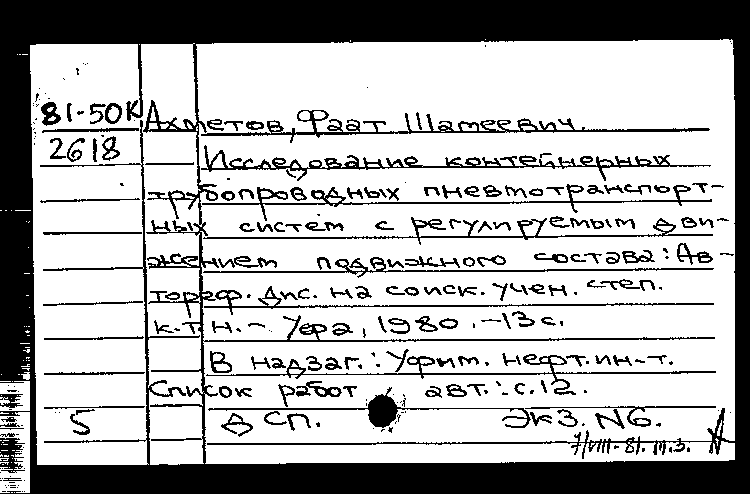 81-50К Ахметов, Фаат Шамеевич.
2618 Исследование контейнерных
трубопроводных пневмотранспорт-
ных систем с регулируемым дви-
жением подвижного состава: Ав-
тореф. дис. на соиск. учен. степ.
к.т.н. - Уфа, 1980. -13 с.
В надзаг.: Уфим. нефт. ин-т.
Список работ авт.: с. 12.
5 ДСП. Экз. N6.
7/VIII-81. м.з.